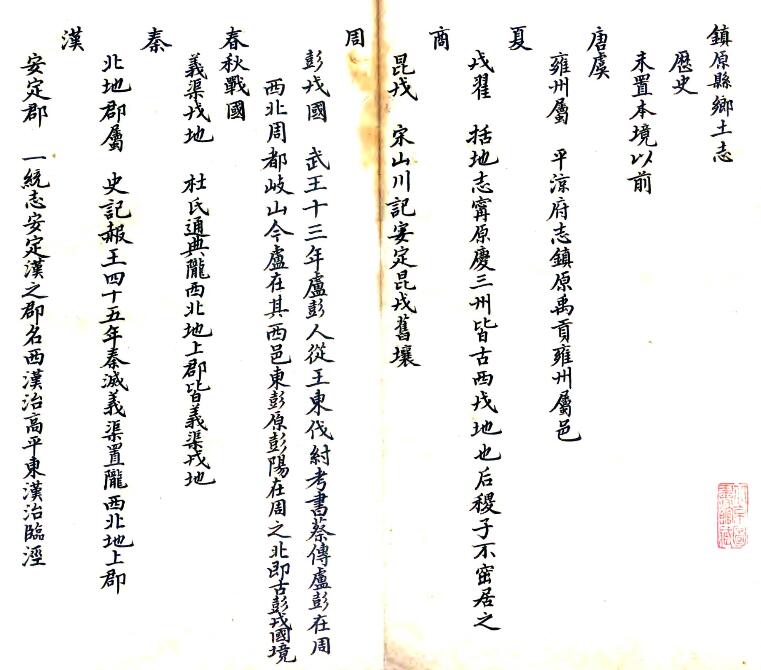 鎮原縣鄉土志
歷史
未置本境以前
唐虞
雍州屬　平涼府志鎮原禹貢雍州屬邑
夏
戎翟　括地志寗原慶三州皆古西戎地也后稷子不窋居之
商
昆戎　宋山川記安定昆戎舊壤
周
彭戎國　武王十三年盧彭人從王東伐紂考書蔡傳盧彭在周
西北周都岐山今盧在其西邑東彭原彭陽在周之北即古彭戎國境
春秋戰國
義渠戎地　杜氏通典隴西北地上郡皆義渠戎地
秦
北地郡屬　史記赧王四十五年秦滅義渠置隴西北地上郡
漢
安定郡　一統志安定漢之郡名西漢治高平東漢治臨涇